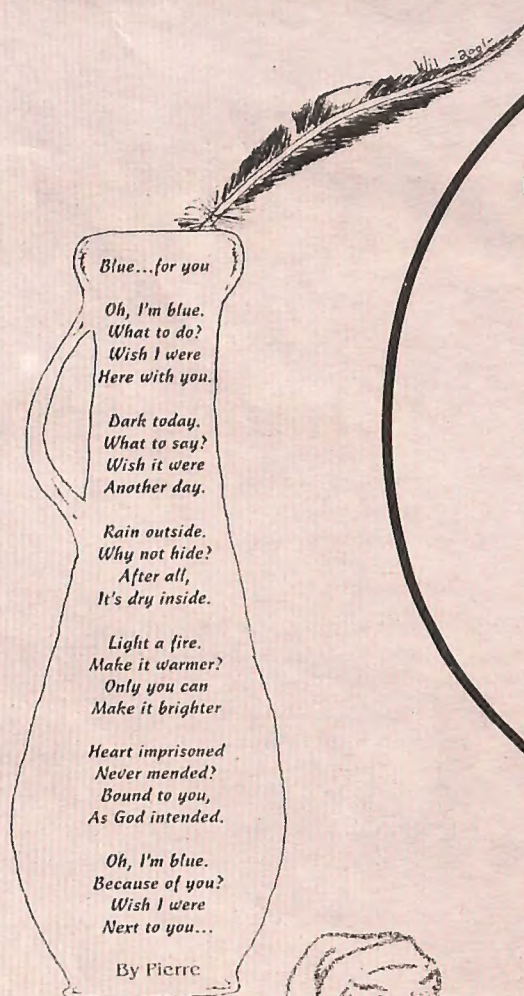 Wil -2001-
Blue...for you
Oh, I'm blue.
What to do?
Wish I were
Here with you.
Dark today.
What to say?
Wish it were
Another day.
Rain outside.
Why not hide?
After all,
It's dry inside.
Light a fire.
Make it warmer?
Only you can
Make it brighter
Heart imprisoned
Never mended?
Bound to you,
As God intended.
Oh, I'm blue.
Because of you?
Wish I were
Next to you...
By Pierre